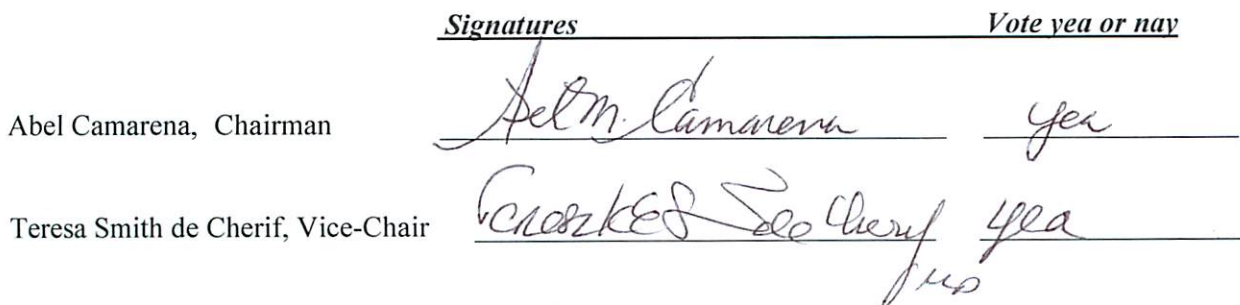 Signatures Vote yea or nay
Abel Camarena, Chairman Abel M. Camarena yea
Teresa Smith de Cherif, Vice-Chair de Cherif yea
MD